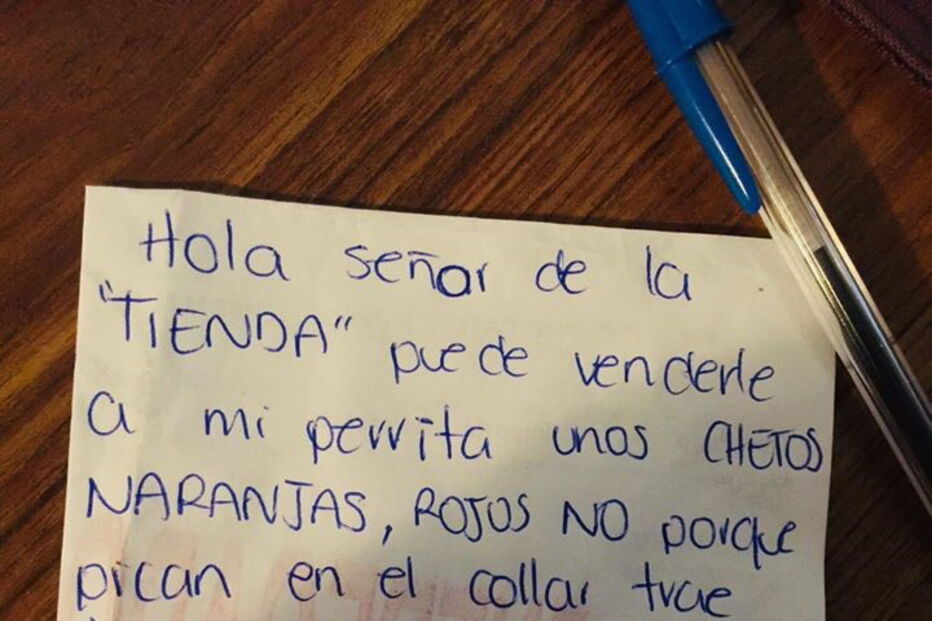 Hola señar de la
"TIENDA" puede venderle
a mi perrita unos CHETOS
NARANJAS, ROJOS NO porque
pican en el collar trae